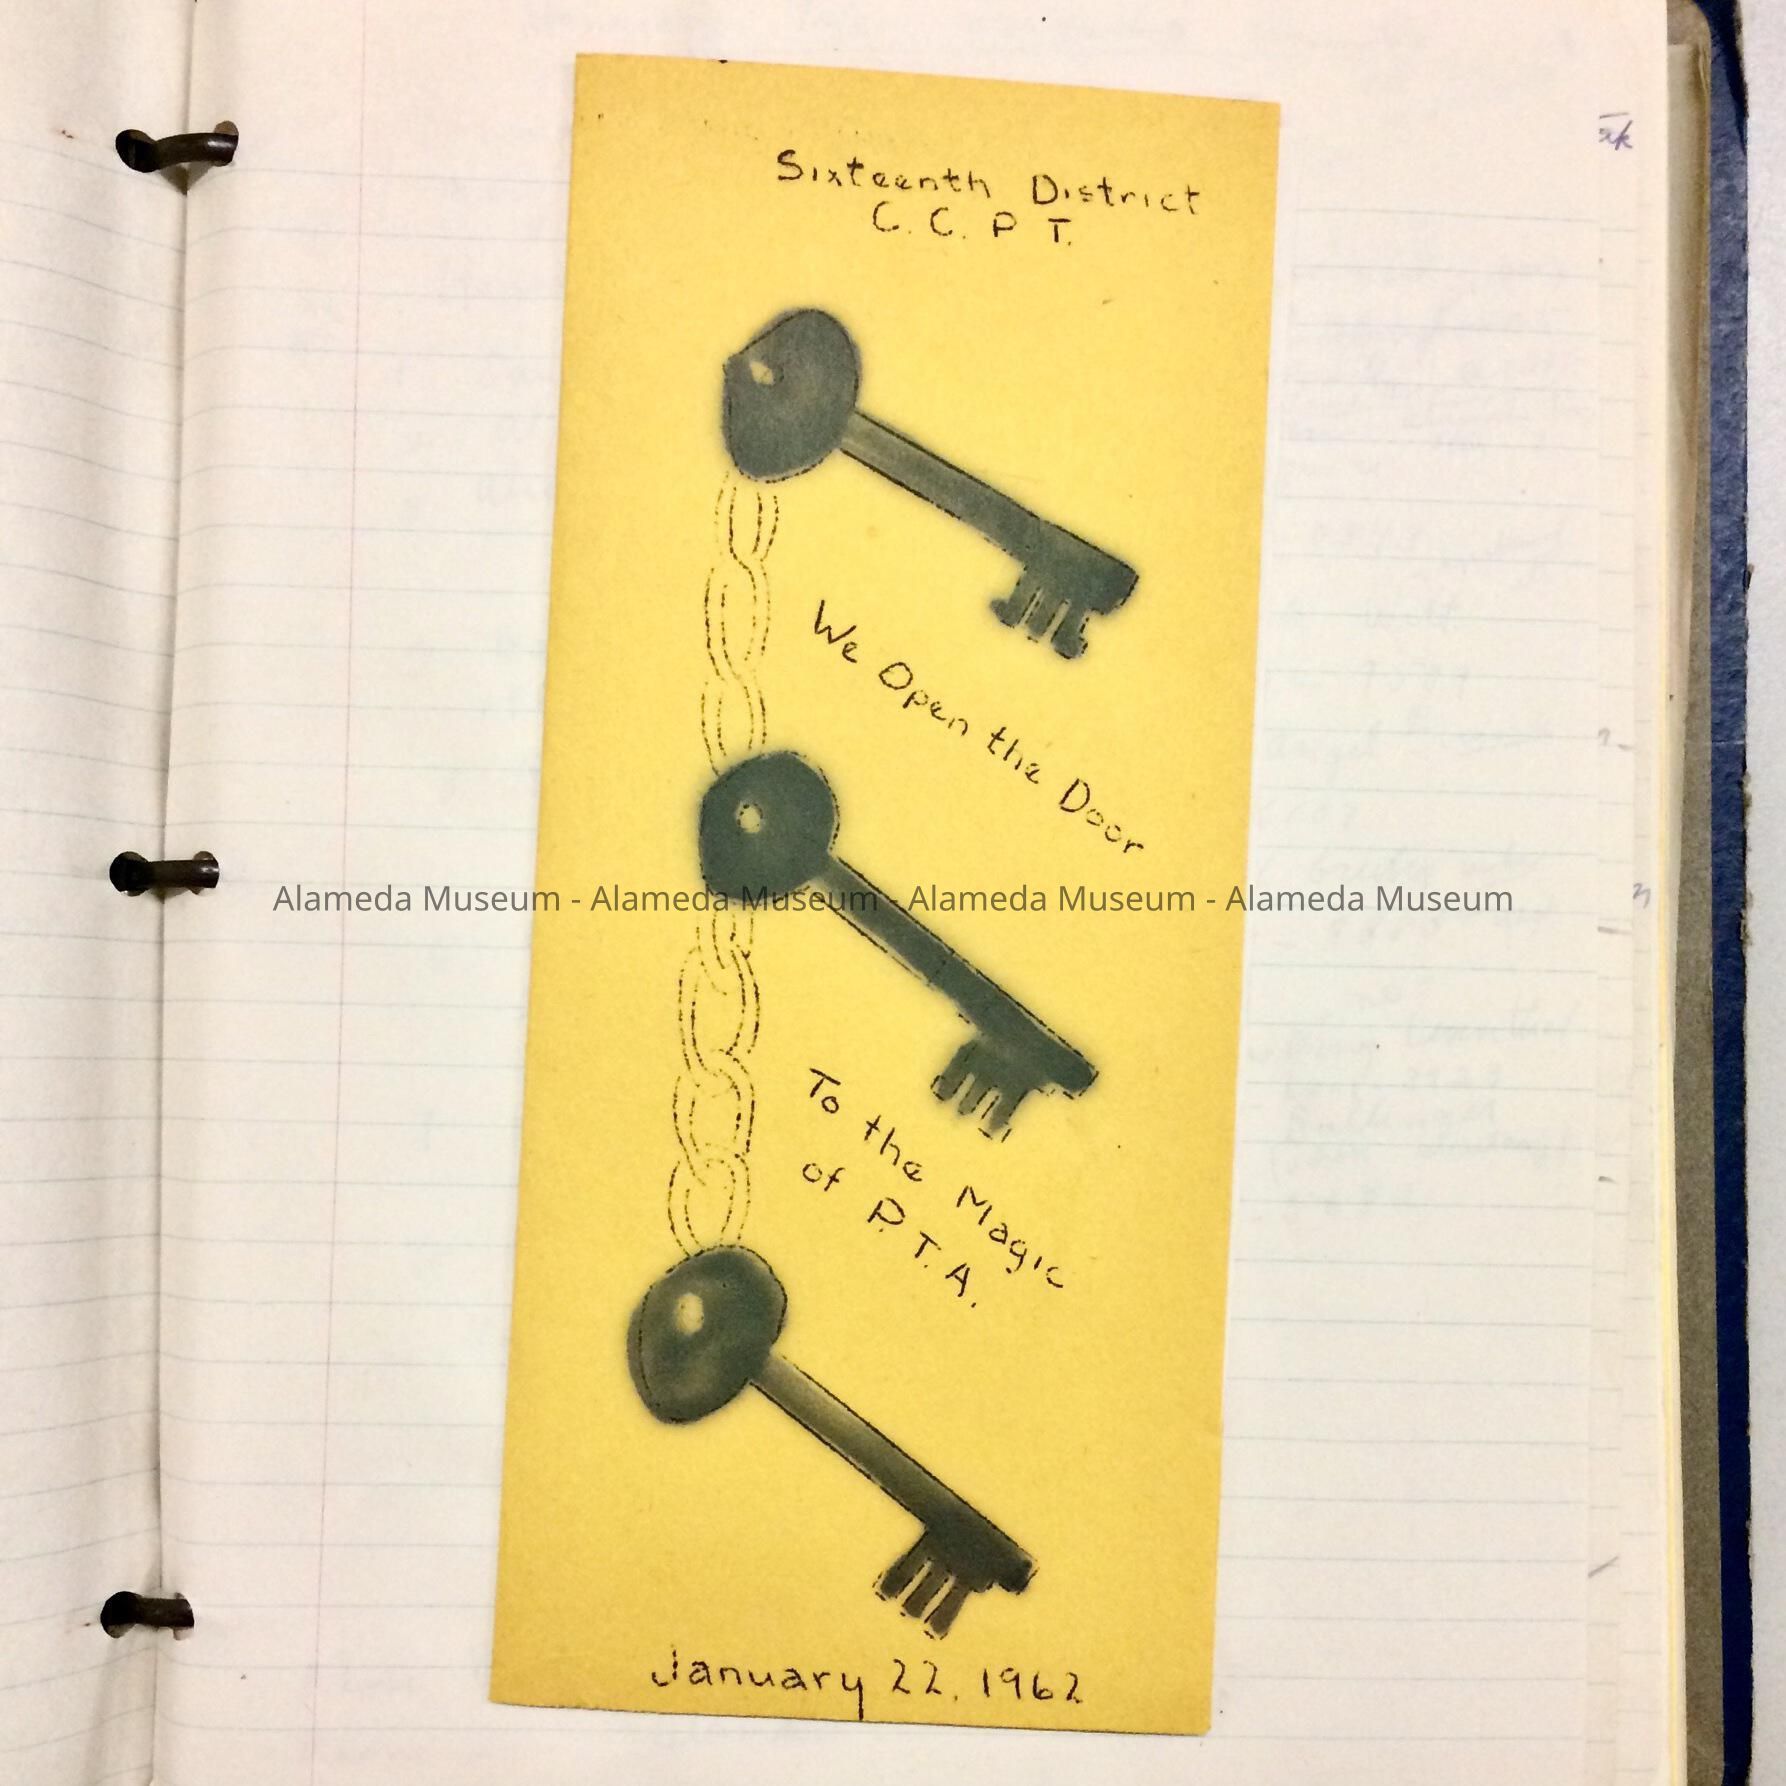 Sixteenth District
C. C. P T.
We Open the Door
Alameda Museum - Alameda Museum - Alameda Museum - Alameda Museum
To the Magic
of P.T.A.
January 22, 1962